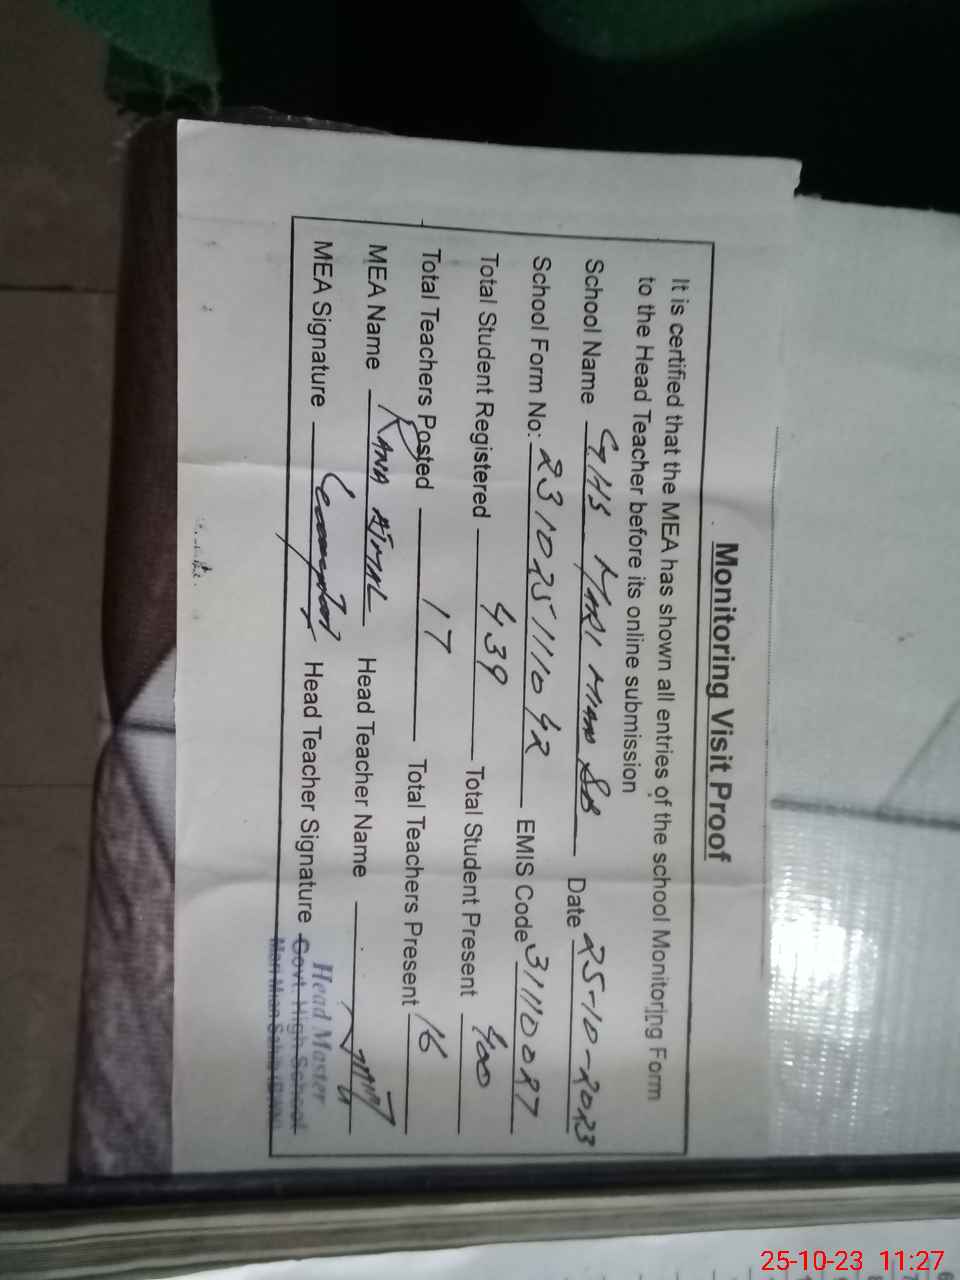 Monitoring Visit Proof
It is certified that the MEA has shown all entries of the school Monitoring Form
to the Head Teacher before its online submission
School Name GHS MARI MIAN SB Date 25-10-2023
School Form No: 23102511104R EMIS Code 31110027
Total Student Registered 439 Total Student Present 400
Total Teachers Posted 17 Total Teachers Present 16
MEA Name RANA AJMAL Head Teacher Name
MEA Signature Head Teacher Signature
Head Master
Govt. High School
Mari Mian Sahib
25-10-23 11:27